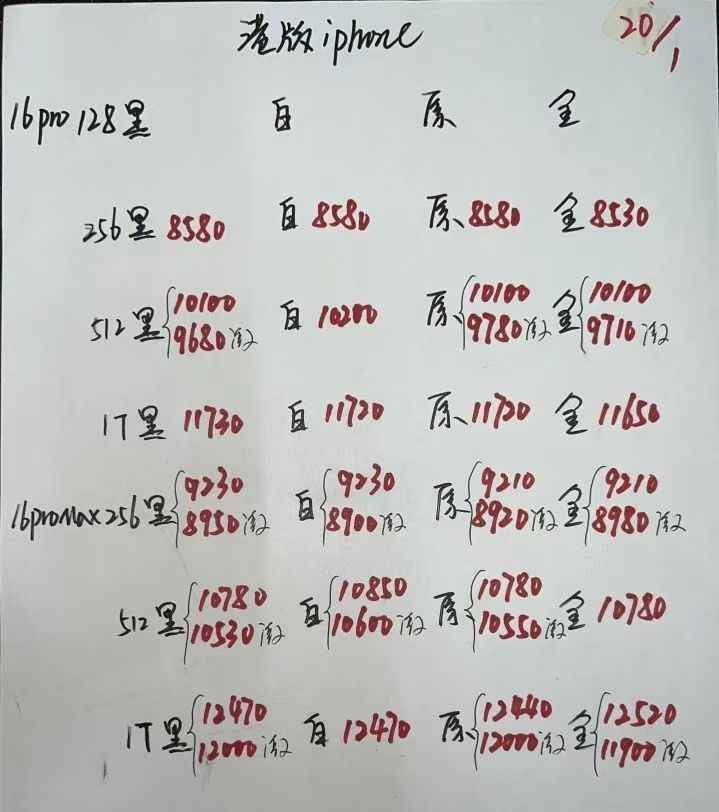 港版iphone 20/1
16pro 128黑 白 原 金
256黑 8580 白 8580 原 8580 金 8530
512黑 10100 白 10200 原 10100 金 10100
9680激 9780激 9710激
1T黑 11730 白 11720 原 11720 金 11650
16proMax 256黑 9230 白 9230 原 9210 金 9210
8950激 8900激 8920激 8980激
512黑 10780 白 10850 原 10780 金 10780
10530激 10600激 10550激
1T黑 12470 白 12470 原 12440 金 12520
12000激 12000激 11900激